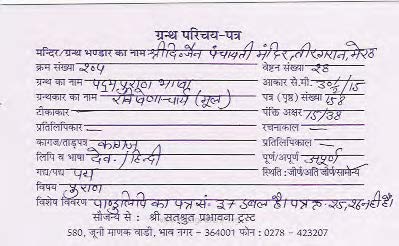 ग्रन्थ परिचय-पत्र
मन्दिर/ग्रन्थ भण्डार का नाम श्री दि. जैन पंचायती मंदिर, तीरगरान, मेरठ
क्रम संख्या २०५ वेष्टन संख्या २८
ग्रन्थ का नाम पद्मपुराण भाषा आकार से.मी. 30½/15
ग्रन्थकार का नाम रविषेणाचार्य (मूल) पत्र (पृष्ठ) संख्या 158
टीकाकार — पंक्ति अक्षर 15/38
प्रतिलिपिकार — रचनाकाल —
कागज/ताड़पत्र कागज प्रतिलिपिकाल —
लिपि व भाषा देव. / हिन्दी पूर्ण/अपूर्ण अपूर्ण
गद्य/पद्य पद्य स्थिति : जीर्ण/अति जीर्ण/सामान्य
विषय पुराण
विशेष विवरण पाण्डुलिपि का पत्र सं. 37 डबल है। पत्र क्र. २५, २६ नहीं है।
सौजन्य से : श्री सत्श्रुत प्रभावना ट्रस्ट
580, जूनी माणक वाडी, भाव नगर - 364001 फोन : 0278 - 423207